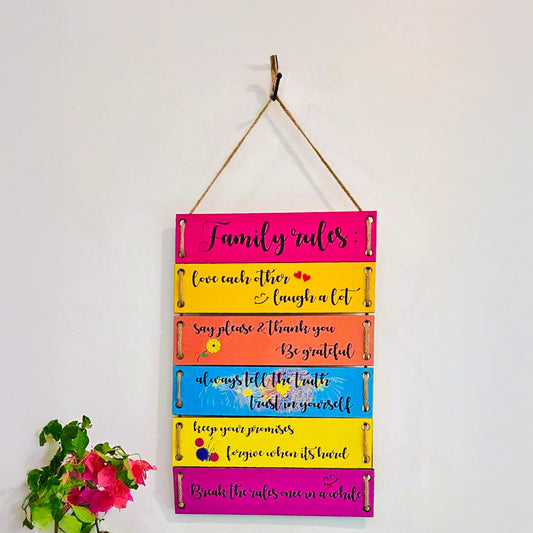 Family rules:
love each other
laugh a lot
say please & thank you
Be grateful
always tell the truth
trust in yourself
keep your promises
forgive when its hard
Break the rules once in a while